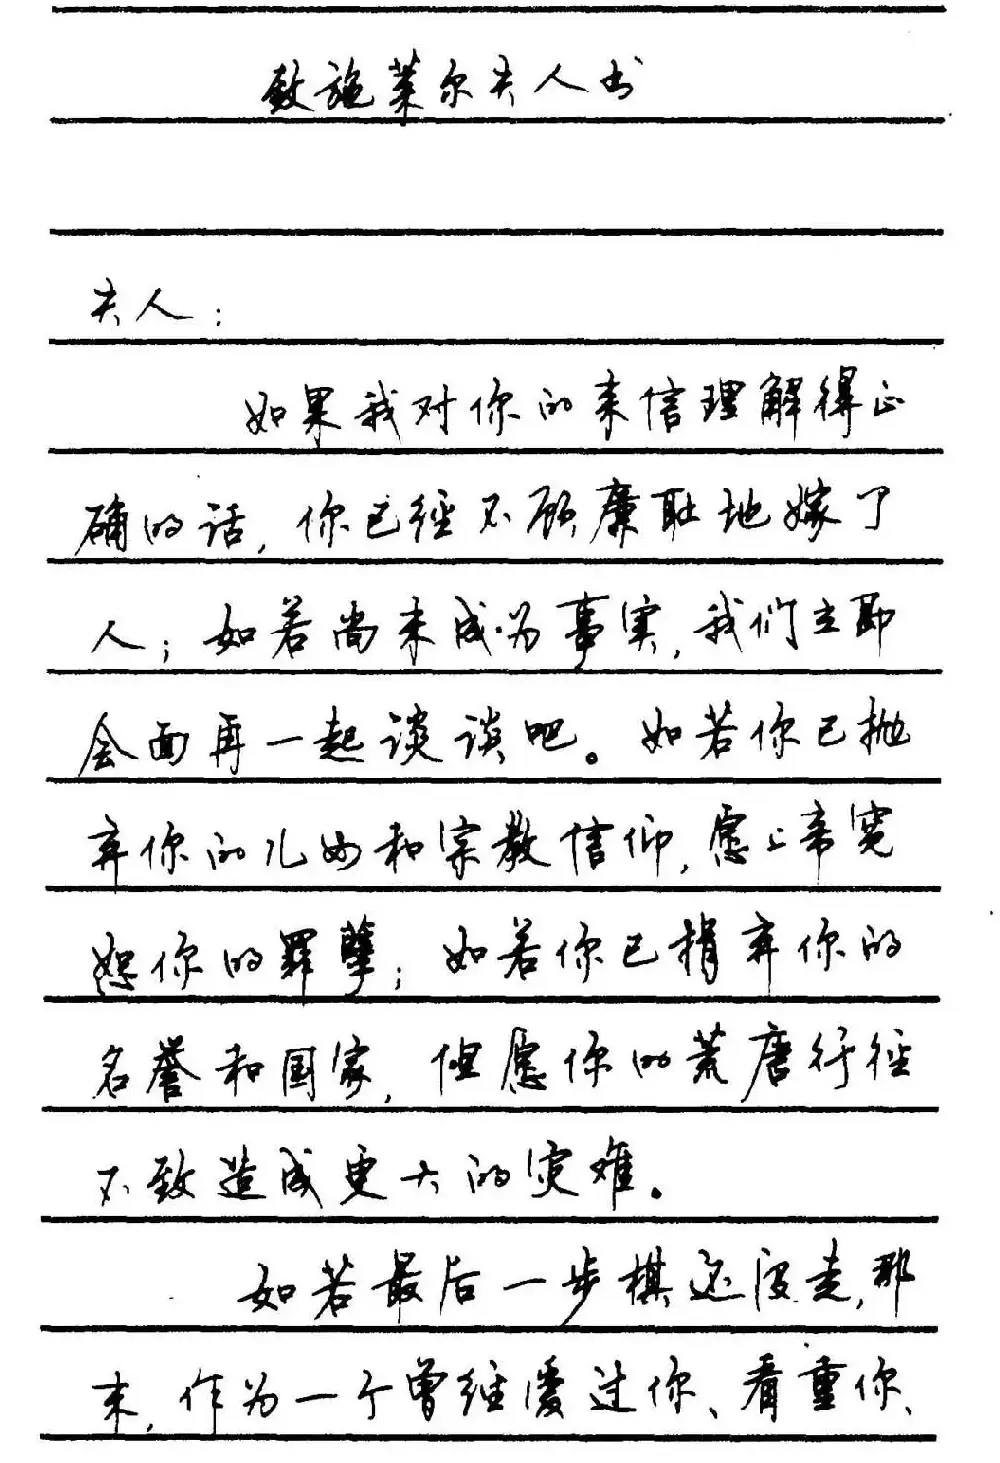 致施莱尔夫人书
夫人：
如果我对你的来信理解得正
确的话，你已经不顾廉耻地嫁了
人；如若尚未成为事实，我们立即
会面再一起谈谈吧。如若你已抛
弃你的儿女和宗教信仰，愿上帝宽
恕你的罪孽；如若你已捐弃你的
名誉和国家，但愿你的荒唐行径
不致造成更大的灾难。
如若最后一步棋还没走，那
末，作为一个曾经爱过你、看重你、